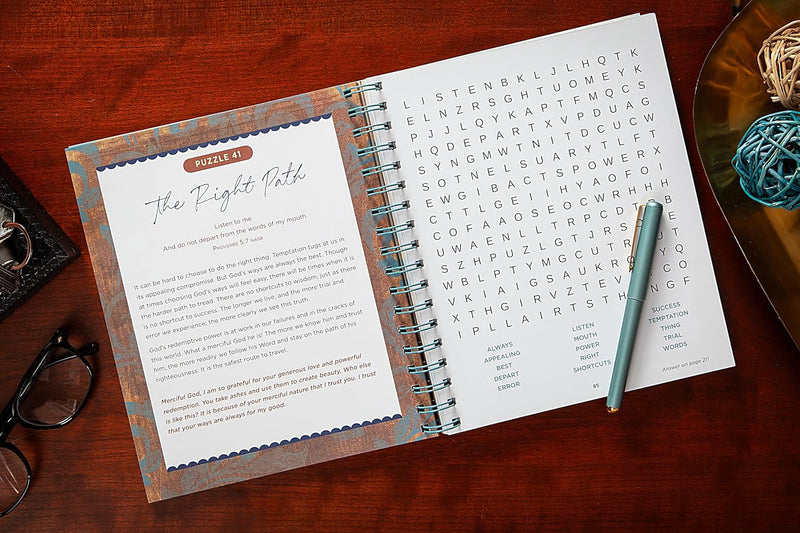 PUZZLE 41
The Right Path
Listen to me
And do not depart from the words of my mouth.
PROVERBS 5:7 NASB
It can be hard to choose to do the right thing. Temptation tugs at us in
its appealing compromise. But God's ways are always the best. Though
at times choosing God's ways will feel easy, there will be times when it is
the harder path to tread. There are no shortcuts to wisdom, just as there
is no shortcut to success. The longer we live, and the more trial and
error we experience, the more clearly we see this truth.
God's redemptive power is at work in our failures and in the cracks of
this world. What a merciful God he is! The more we know him and trust
him, the more readily we follow his Word and stay on the path of his
righteousness. It is the safest route to travel.
Merciful God, I am so grateful for your generous love and powerful
redemption. You take ashes and use them to create beauty. Who else
is like this? It is because of your merciful nature that I trust you. I trust
that your ways are always for my good.
L I S T E N B K L J L H Q T K
E L N Z R S G H T U O M E Y K
P J J L Q Y K A P T F M Q C S
H Q D E P A R T X V P D U A G
S Y N G M W T N I T D C U C W
S O T N E L S U A R Y T L F T
E W G I B A C T S P O W E R X
C T T L G E I I H Y A O F O I
C O F A A O S E O C W R H H H
U W A E N L L T R P C D S E
S Z H P U Z L G T J R S
W B L P T Y M G C U T
V K I A I G S A U K R
X T H G I R V Z T E V C O
I P L L A I R T S T H I N G F
ALWAYS LISTEN SUCCESS
APPEALING MOUTH TEMPTATION
BEST POWER THING
DEPART RIGHT TRIAL
ERROR SHORTCUTS WORDS
95 Answer on page 211